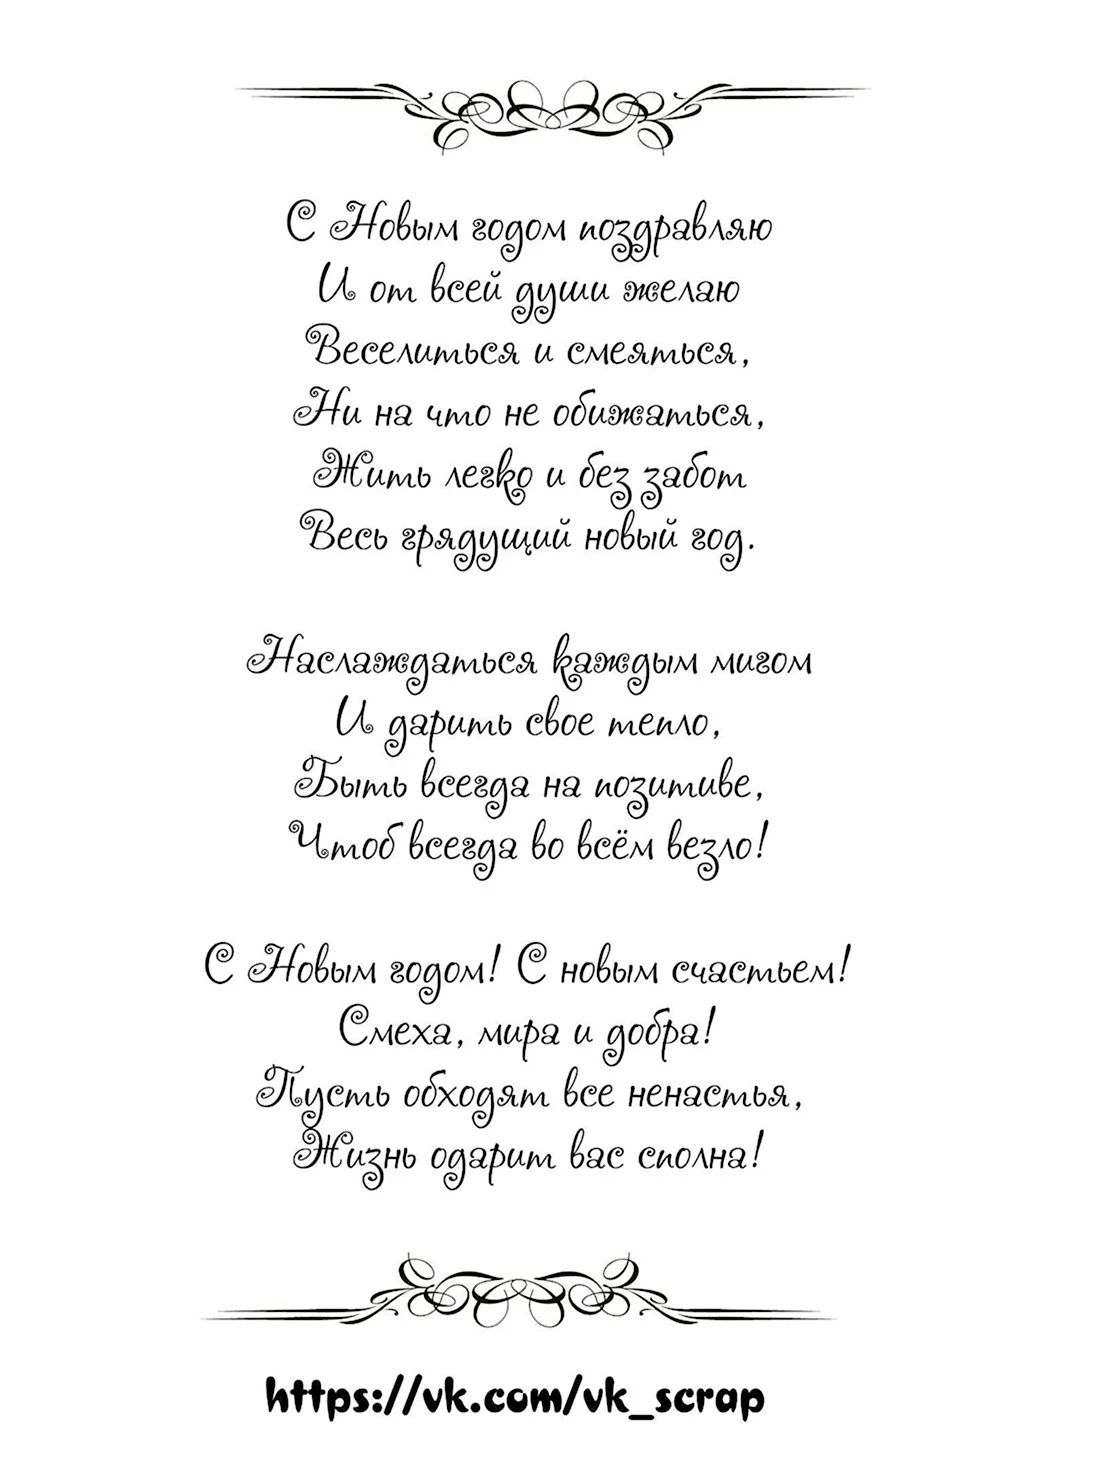 С Новым годом поздравляю
И от всей души желаю
Веселиться и смеяться,
Ни на что не обижаться,
Жить легко и без забот
Весь грядущий новый год.
Наслаждаться каждым мигом
И дарить свое тепло,
Быть всегда на позитиве,
Чтоб всегда во всём везло!
С Новым годом! С новым счастьем!
Смеха, мира и добра!
Пусть обходят все ненастья,
Жизнь одарит вас сполна!
https://vk.com/vk_scrap